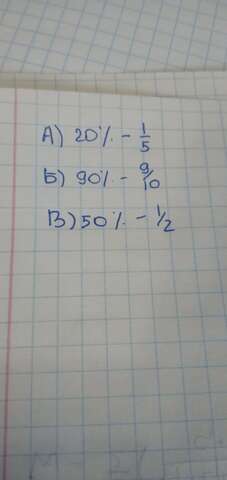 А) 20% - 1/5
Б) 90% - 9/10
В) 50% - 1/2